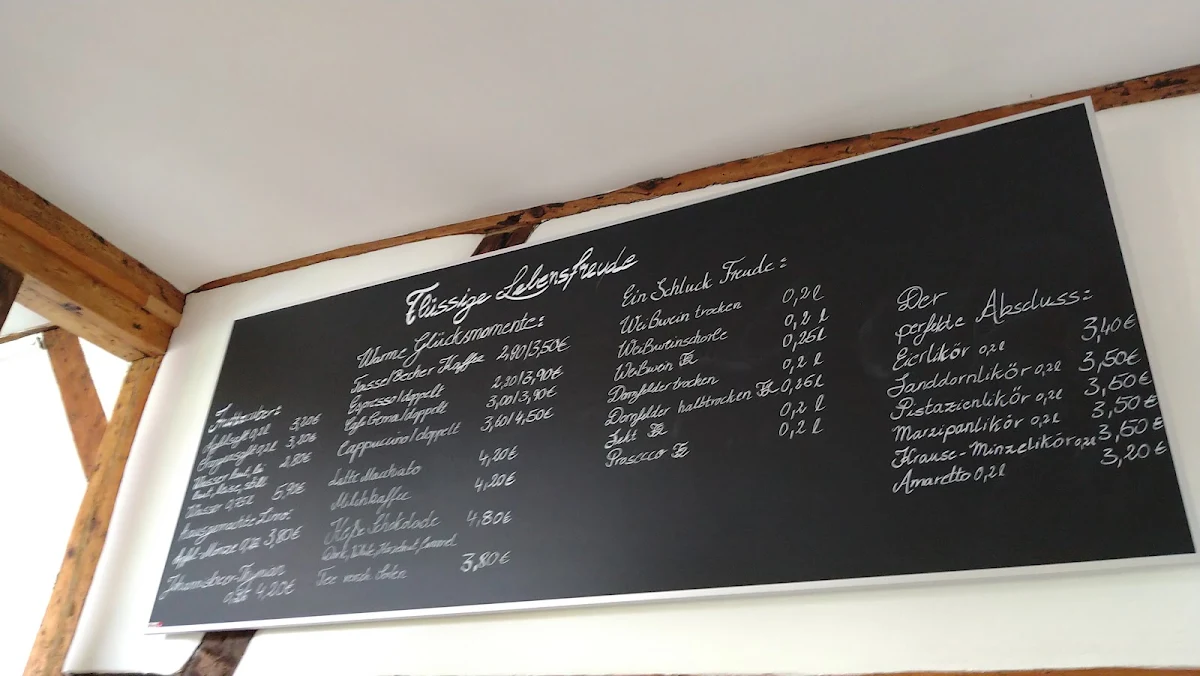 Flüssige Lebensfreude
Apfelsaft 0,2l 3,20€
Orangensaft 0,2l 3,20€
Wasser laut, lei 2,80€
laut, leise, still
Wasser 0,75l 5,90€
Hausgemachte Limo:
Apfel-Minze 3,80€
4,20€
Warme Glücksmomente:
Tasse/Becher Kaffee 2,90/3,50€
Espresso/doppelt 2,20/3,90€
Cafe Crema/doppelt 3,00/3,90€
Cappuccino/doppelt 3,60/4,50€
Latte Macchiato 4,20€
Milchkaffee 4,20€
Heiße Schokolade 4,80€
Dark, White, Haselnut, Caramel
Tee nach 3,80€
Ein Schluck Freude:
Weißwein trocken 0,2l
Weißweinschorle 0,2l
Weißwein 0,25l
Dornfelder trocken 0,2l
Dornfelder halbtrocken 0,25l
Sekt 0,2l
Prosecco 0,2l
Der
perfekte Absduss:
Eierlikör 0,2l 3,40€
Sanddornlikör 0,2l 3,50€
Pistazienlikör 0,2l 3,50€
Marzipanlikör 0,2l 3,50€
Krause-Minzelikör 0,2l 3,50€
Amaretto 0,2l 3,20€